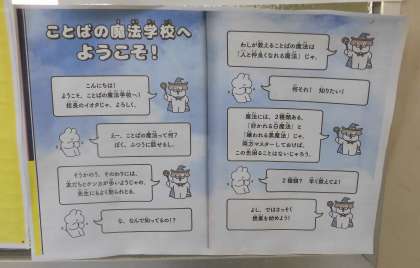 ことばの魔法学校へ
ようこそ!
こんにちは!
ようこそ、ことばの魔法学校へ!
校長のイオタじゃ、よろしく。
えー、ことばの魔法って何?
ぼく、ふつうに話せるし。
そうかのう。そのわりには、
友だちとケンカが多いようじゃの。
先生にもよく怒られとる。
な、なんで知ってるの!?
わしが教えることばの魔法は
「人と仲良くなれる魔法」じゃ。
何それ! 知りたい!
魔法には、2種類ある。
「好かれる白魔法」と
「嫌われる黒魔法」じゃ。
両方マスターしておけば、
この先困ることはないじゃろう。
2種類? 早く教えてよ!
よし、ではさっそく
授業を始めよう!